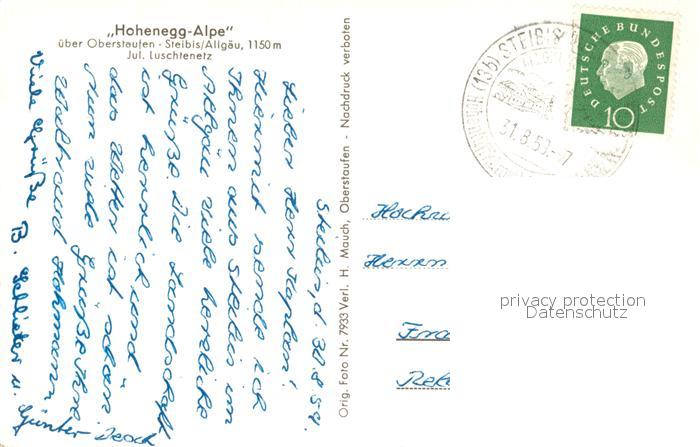 „Hohenegg-Alpe“
über Oberstaufen - Steibis/Allgäu, 1150 m
Jul. Luschtenetz
Steibis, d. 30.8.59.
Lieber Herr
Hiermit sende ich
Ihnen aus Steibis im
Allgäu viele herzliche
Grüße. Die Landschaft
ist herrlich und
das Wetter ist schön.
Nun viele Grüße Ihre
Waltraud
Viele Grüße B. u. Günter
Orig. Foto Nr. 7933 Verl. H. Mauch, Oberstaufen - Nachdruck verboten
(13b) STEIBIS
31.8.59.-7
DEUTSCHE BUNDESPOST
10
Herrn
privacy protection
Datenschutz